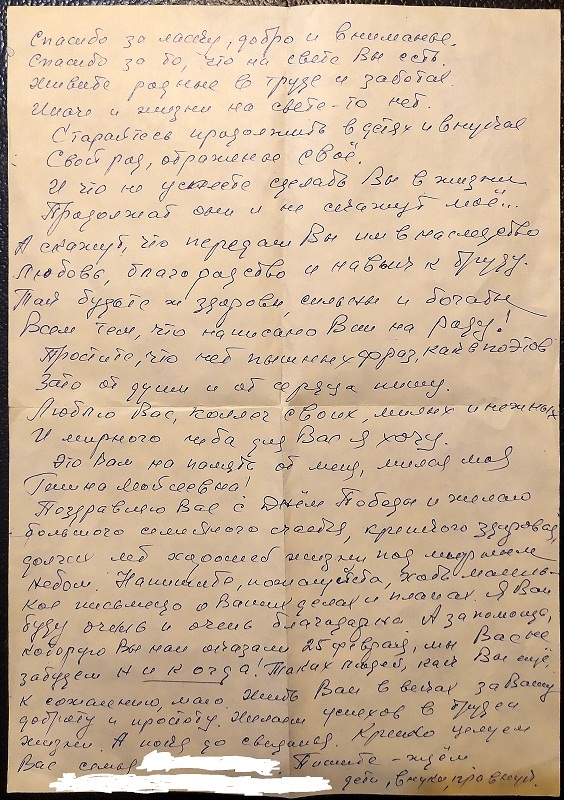 Спасибо за ласку, добро и вниманье.
Спасибо за то, что на свете Вы есть.
Живите родные в труде и заботах
Иначе и жизни на свете-то нет.
Старайтесь продолжить в детях и внучках
Свой род, отраженье своё.
И что не успеете сделать Вы в жизни
Продолжат они и не скажут моё...
А скажут, что передали Вы им в наследство
Любовь, благородство и навык к труду.
Так будьте ж здоровы, сильны и богаты
Всем тем, что написано Вам на роду!
Простите, что нет пышных фраз, как в поэтов
Зато от души и от сердца пишу.
Люблю Вас, коллег своих, милых и нежных
И мирного неба для Вас я хочу.
Это Вам на память от меня, милая моя
Моисеевна!
Поздравляю Вас с Днём Победы и желаю
большого семейного счастья, крепкого здоровья,
долгих лет хорошей жизни под мирным
небом. Напишите, пожалуйста, хоть малень-
кое письмецо о Ваших делах и планах. Я Вам
буду очень и очень благодарна. А за помощь,
которую Вы нам оказали 25 февраля, мы Вас не
забудем никогда! Таких людей, как Вы ещё,
к сожалению, мало. Жить Вам в веках за Вашу
доброту и простоту. Желаем успехов в труде и
жизни. А пока до свиданья. Крепко целуем
Вас семья Пишите - ждём.
дети, внуки, правнуки.